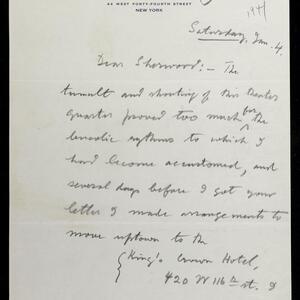 44 WEST FORTY-FOURTH STREET
NEW YORK
1941
Saturday, Jan. 4.
Dear Sherwood:- The
tumult and shouting of this theater
quarter proved too much for the
bucolic rythms to which I
had become accustomed, and
several days before I got your
letter I made arrangements to
move uptown to the
King's Crown Hotel,
420 W 116th st. I